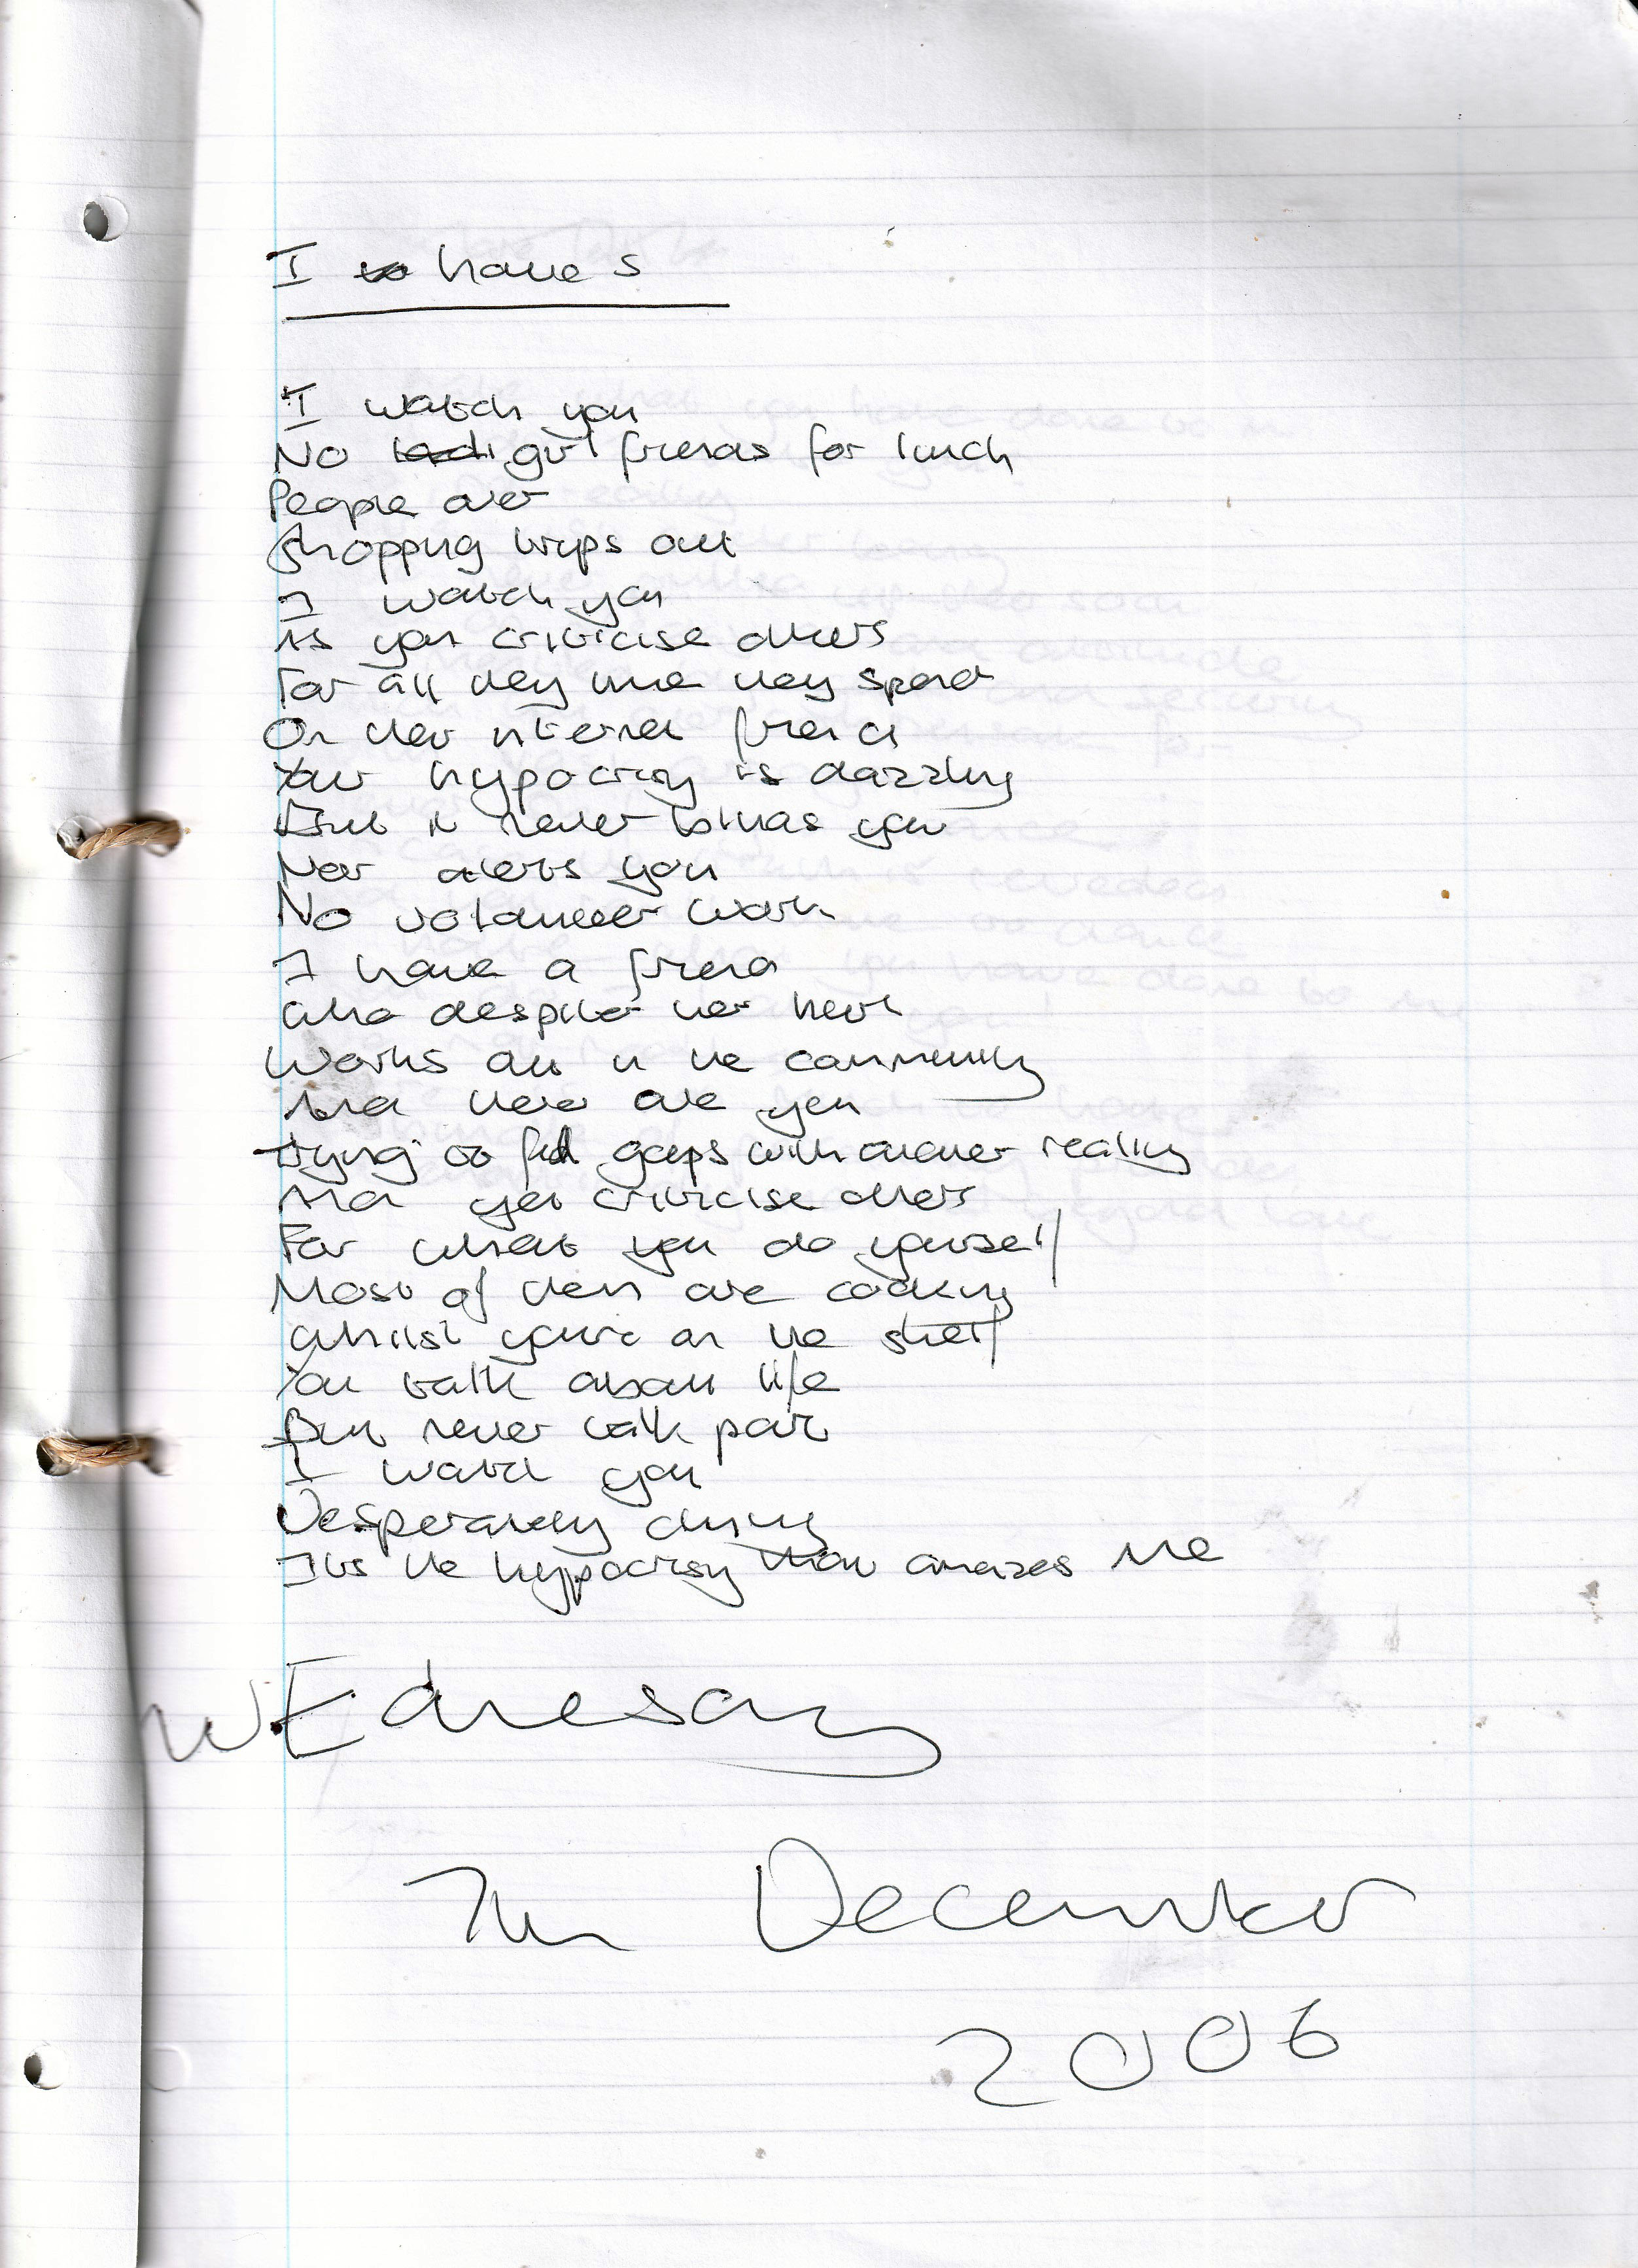 I have s
I watch you
No girl friends for lunch
People over
Shopping trips out
I watch you
As you criticise others
For all they time they spend
On their internet friends
Your hypocrisy is dazzling
But it never blinds you
Nor alerts you
No volanteer work
I have a friend
Who despite her
Works out in the community
And there are you
Trying to fill gaps with another reality
And yet criticise others
For what you do yourself
Most of them are
Whilst you're on the shelf
You talk about life
But never talk part
I watch you
Desperately
Its the hypocrisy that amazes me
WEdnesday
7th December
2006